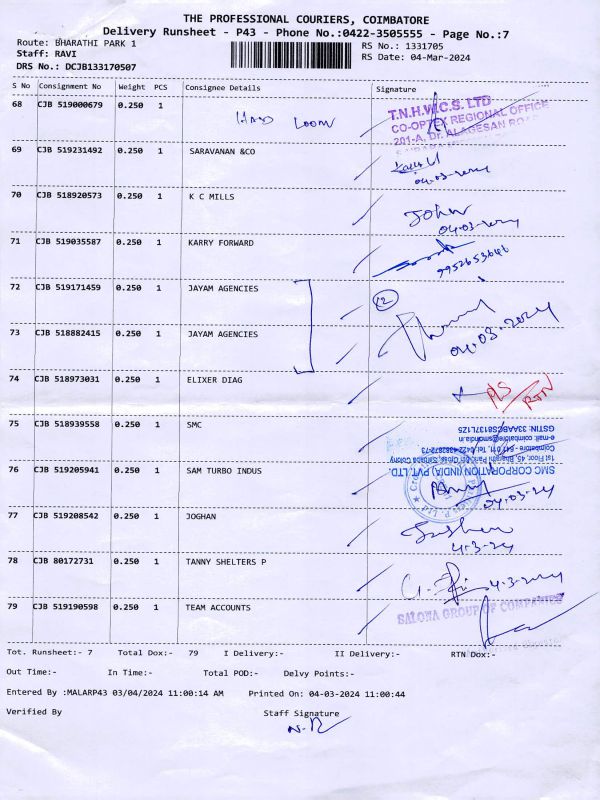 THE PROFESSIONAL COURIERS, COIMBATORE
Delivery Runsheet - P43 - Phone No.:0422-3505555 - Page No.:7
Route: BHARATHI PARK 1
Staff: RAVI
DRS No.: DCJB133170507
RS No.: 1331705
RS Date: 04-Mar-2024
S No Consignment No Weight PCS Consignee Details Signature
68 CJB 519000679 0.250 1 HAND LOOM
T.N.H.W.C.S. LTD
CO-OPTEX REGIONAL OFFICE
201-A, Dr. ALAGESAN ROAD
69 CJB 519231492 0.250 1 SARAVANAN &CO
04-03-2024
70 CJB 518920573 0.250 1 K C MILLS
John
04-03-2024
71 CJB 519035587 0.250 1 KARRY FORWARD
9952653646
72 CJB 519171459 0.250 1 JAYAM AGENCIES
12
73 CJB 518882415 0.250 1 JAYAM AGENCIES
04-03-2024
74 CJB 518973031 0.250 1 ELIXER DIAG
RTN
75 CJB 518939558 0.250 1 SMC
SMC CORPORATION (INDIA) PVT. LTD.
1st Floor, 45, Bharathi Park, 6th Cross, Saibaba Colony
e-mail: coimbatore@smcind.in
76 CJB 519205941 0.250 1 SAM TURBO INDUS
04-03-24
77 CJB 519208542 0.250 1 JOGHAN
4-3-24
78 CJB 80172731 0.250 1 TANNY SHELTERS P
4-3-2024
79 CJB 519190598 0.250 1 TEAM ACCOUNTS
SALONA GROUP OF COMPANIES
Tot. Runsheet:- 7 Total Dox:- 79 I Delivery:- II Delivery:- RTN Dox:-
Out Time:- In Time:- Total POD:- Delvy Points:-
Entered By :MALARP43 03/04/2024 11:00:14 AM Printed On: 04-03-2024 11:00:44
Verified By Staff Signature